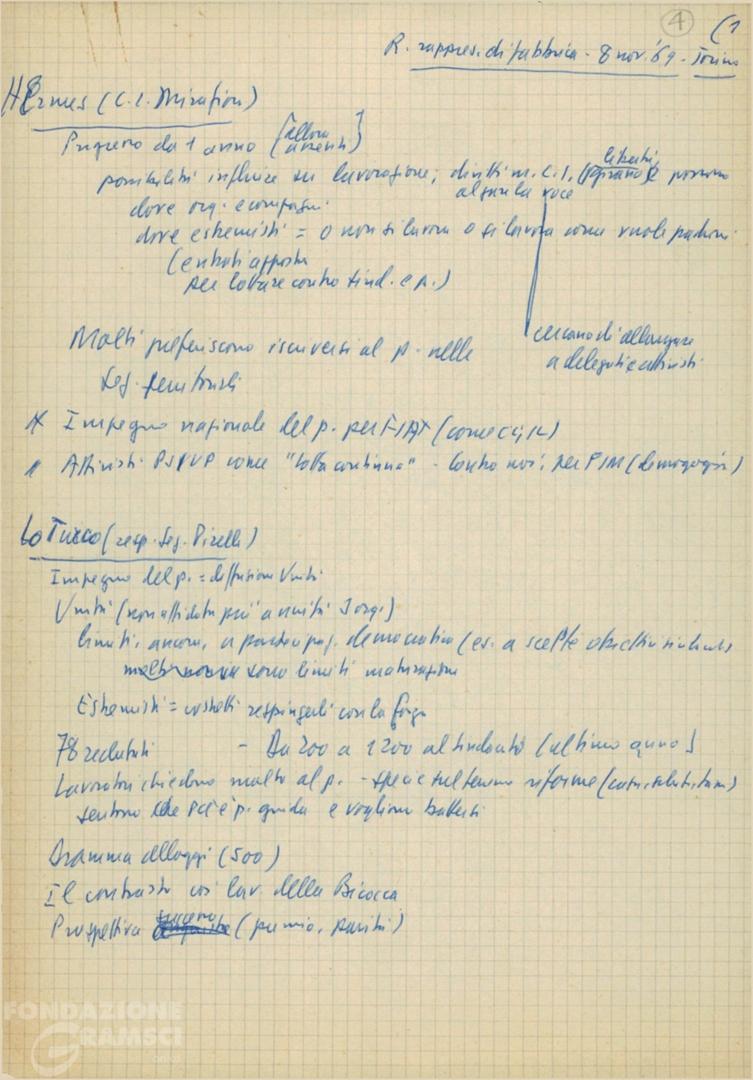 4 (1
R. rappres. di fabbrica - 8 nov. '69 - Torino
Hermes (C.I. Mirafiori)
Ingresso da 1 anno [allora assenti]
possibilità influire su lavorazione; diritti m. C.I. è possono
alzare la voce
dove org. e compagni
dove estremisti = o non si lavora o si lavora come vuole padrone
(entrati apposta
per lottare contro sind. e p.)
Molti preferiscono iscriversi al p. nelle
sez. territoriali
cercano di allargare
a delegati e attivisti
Impegno nazionale del p. per FIAT (come CGIL)
Attivisti PSIUP come "lotta continua" - contro noi, per FIM (demagogia)
Lo Turco (resp. sez. Pirelli)
Impegno del p. = diffusione Unità
Unità (non affidata più a uniti 3 org.)
limiti, ancora, a partecipaz. democratica (es. a scelte obiettivi sindacali
sono limiti maturazione
Estremisti = costretti respingerli con la forza
78 reclutati - Da 200 a 1200 al sindacato (ultimo anno)
Lavoratori chiedono molto al p. - specie sul terreno riforme (casa, salute, tasse)
sentono che PCI è p. guida e vogliono battersi
Dramma alloggi (500)
Il contrasto coi lav. della Bicocca
Prospettiva (premio, parità)
FONDAZIONE
GRAMSCI